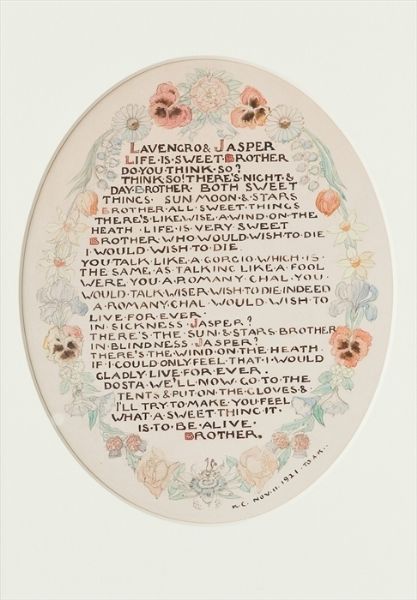 LAVENGRO & JASPER
LIFE·IS·SWEET·BROTHER
DO·YOU·THINK·SO?
THINK·SO! THERE'S·NIGHT·&
DAY·BROTHER· BOTH SWEET
THINGS· SUN·MOON·& STARS
BROTHER·ALL·SWEET·THINGS
THERE'S·LIKEWISE·A·WIND·ON·THE
HEATH· LIFE·IS·VERY·SWEET
BROTHER·WHO·WOULD·WISH·TO·DIE
I·WOULD·WISH·TO·DIE.
YOU·TALK·LIKE·A·GORGIO·WHICH·IS·
THE·SAME·AS·TALKING·LIKE·A·FOOL
WERE·YOU·A·ROMANY·CHAL·YOU·
WOULD·TALK·WISER·WISH·TO·DIE·INDEED
A·ROMANY·CHAL·WOULD·WISH·TO
LIVE·FOR·EVER.
IN·SICKNESS·JASPER?
THERE'S·THE·SUN·&·STARS·BROTHER
IN·BLINDNESS·JASPER?
THERE'S·THE·WIND·ON·THE·HEATH·
IF·I·COULD·ONLY·FEEL·THAT·I·WOULD
GLADLY·LIVE·FOR·EVER·
DOSTA·WE'LL·NOW·GO·TO·THE
TENTS·&·PUT·ON·THE·GLOVES·&·
I'LL·TRY·TO·MAKE·YOU·FEEL
WHAT·A·SWEET·THING·IT·
IS·TO·BE·ALIVE·
BROTHER.
K.C. NOV.11.1921.TO A.K.